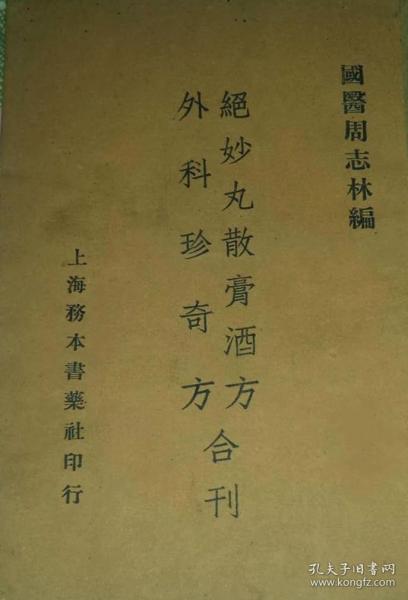 國醫周志林編
絕妙丸散膏酒方
外科珍奇方
合刊
上海務本書藥社印行
孔夫子旧书网
www.kongfz.com